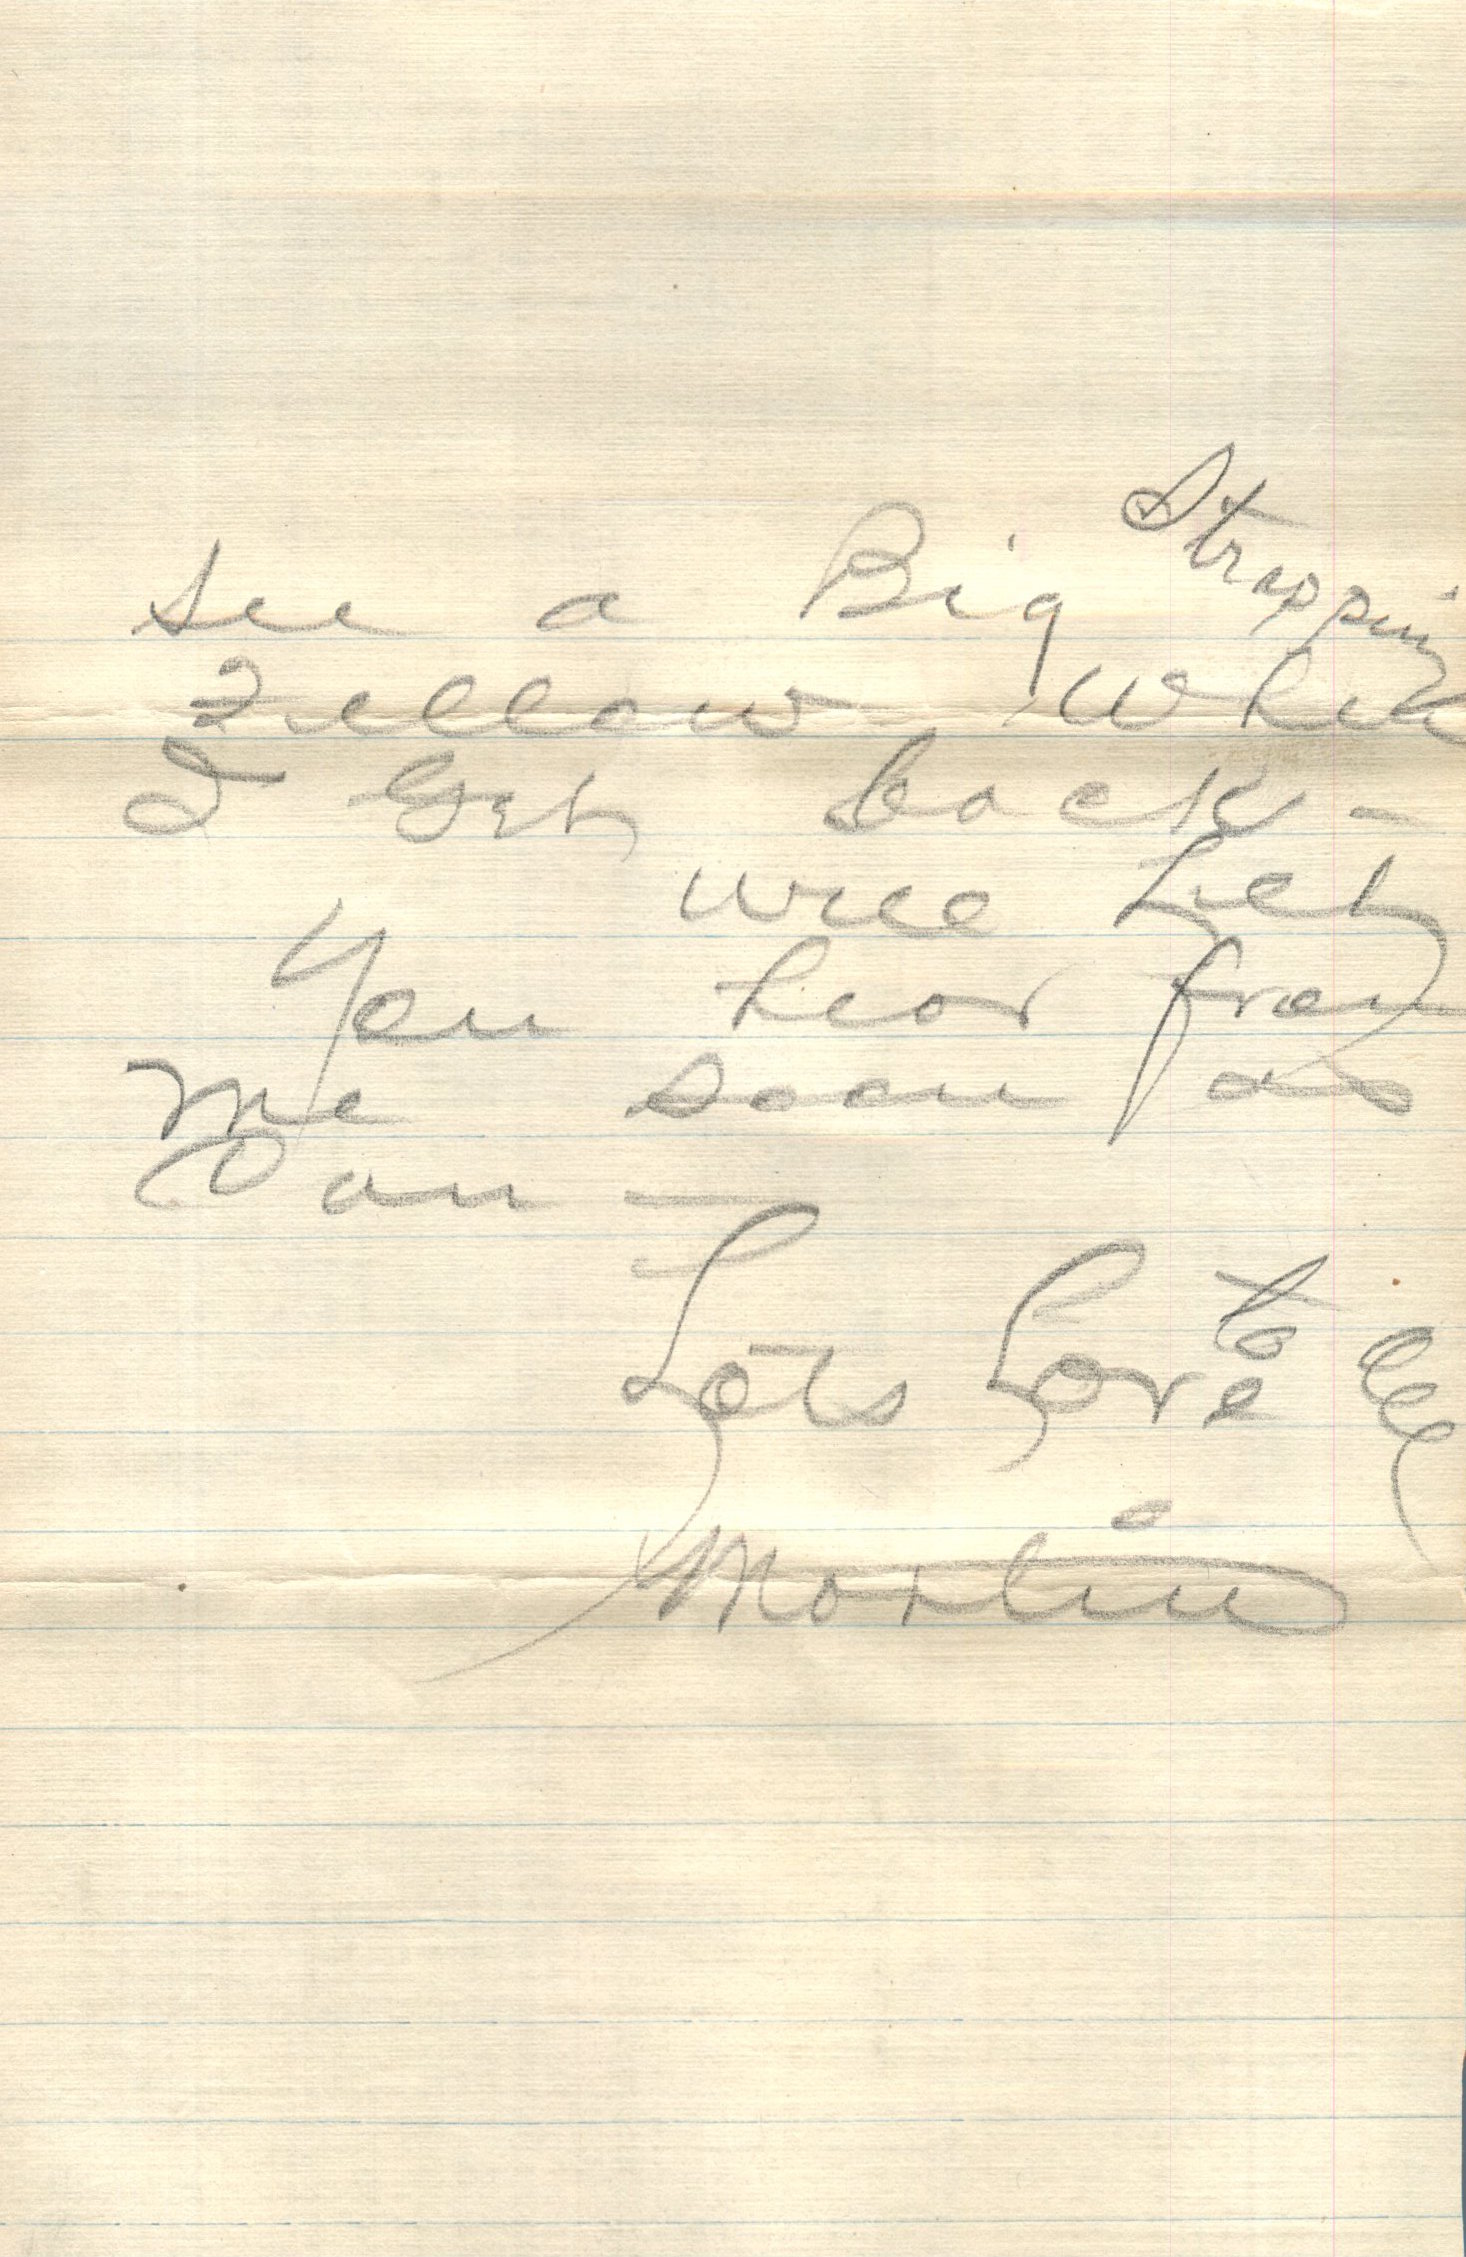 see a Big Strapping
Fellow When
I Get back –
will Let
You hear from
me soon as
Can —
Lots Love to all
Martin